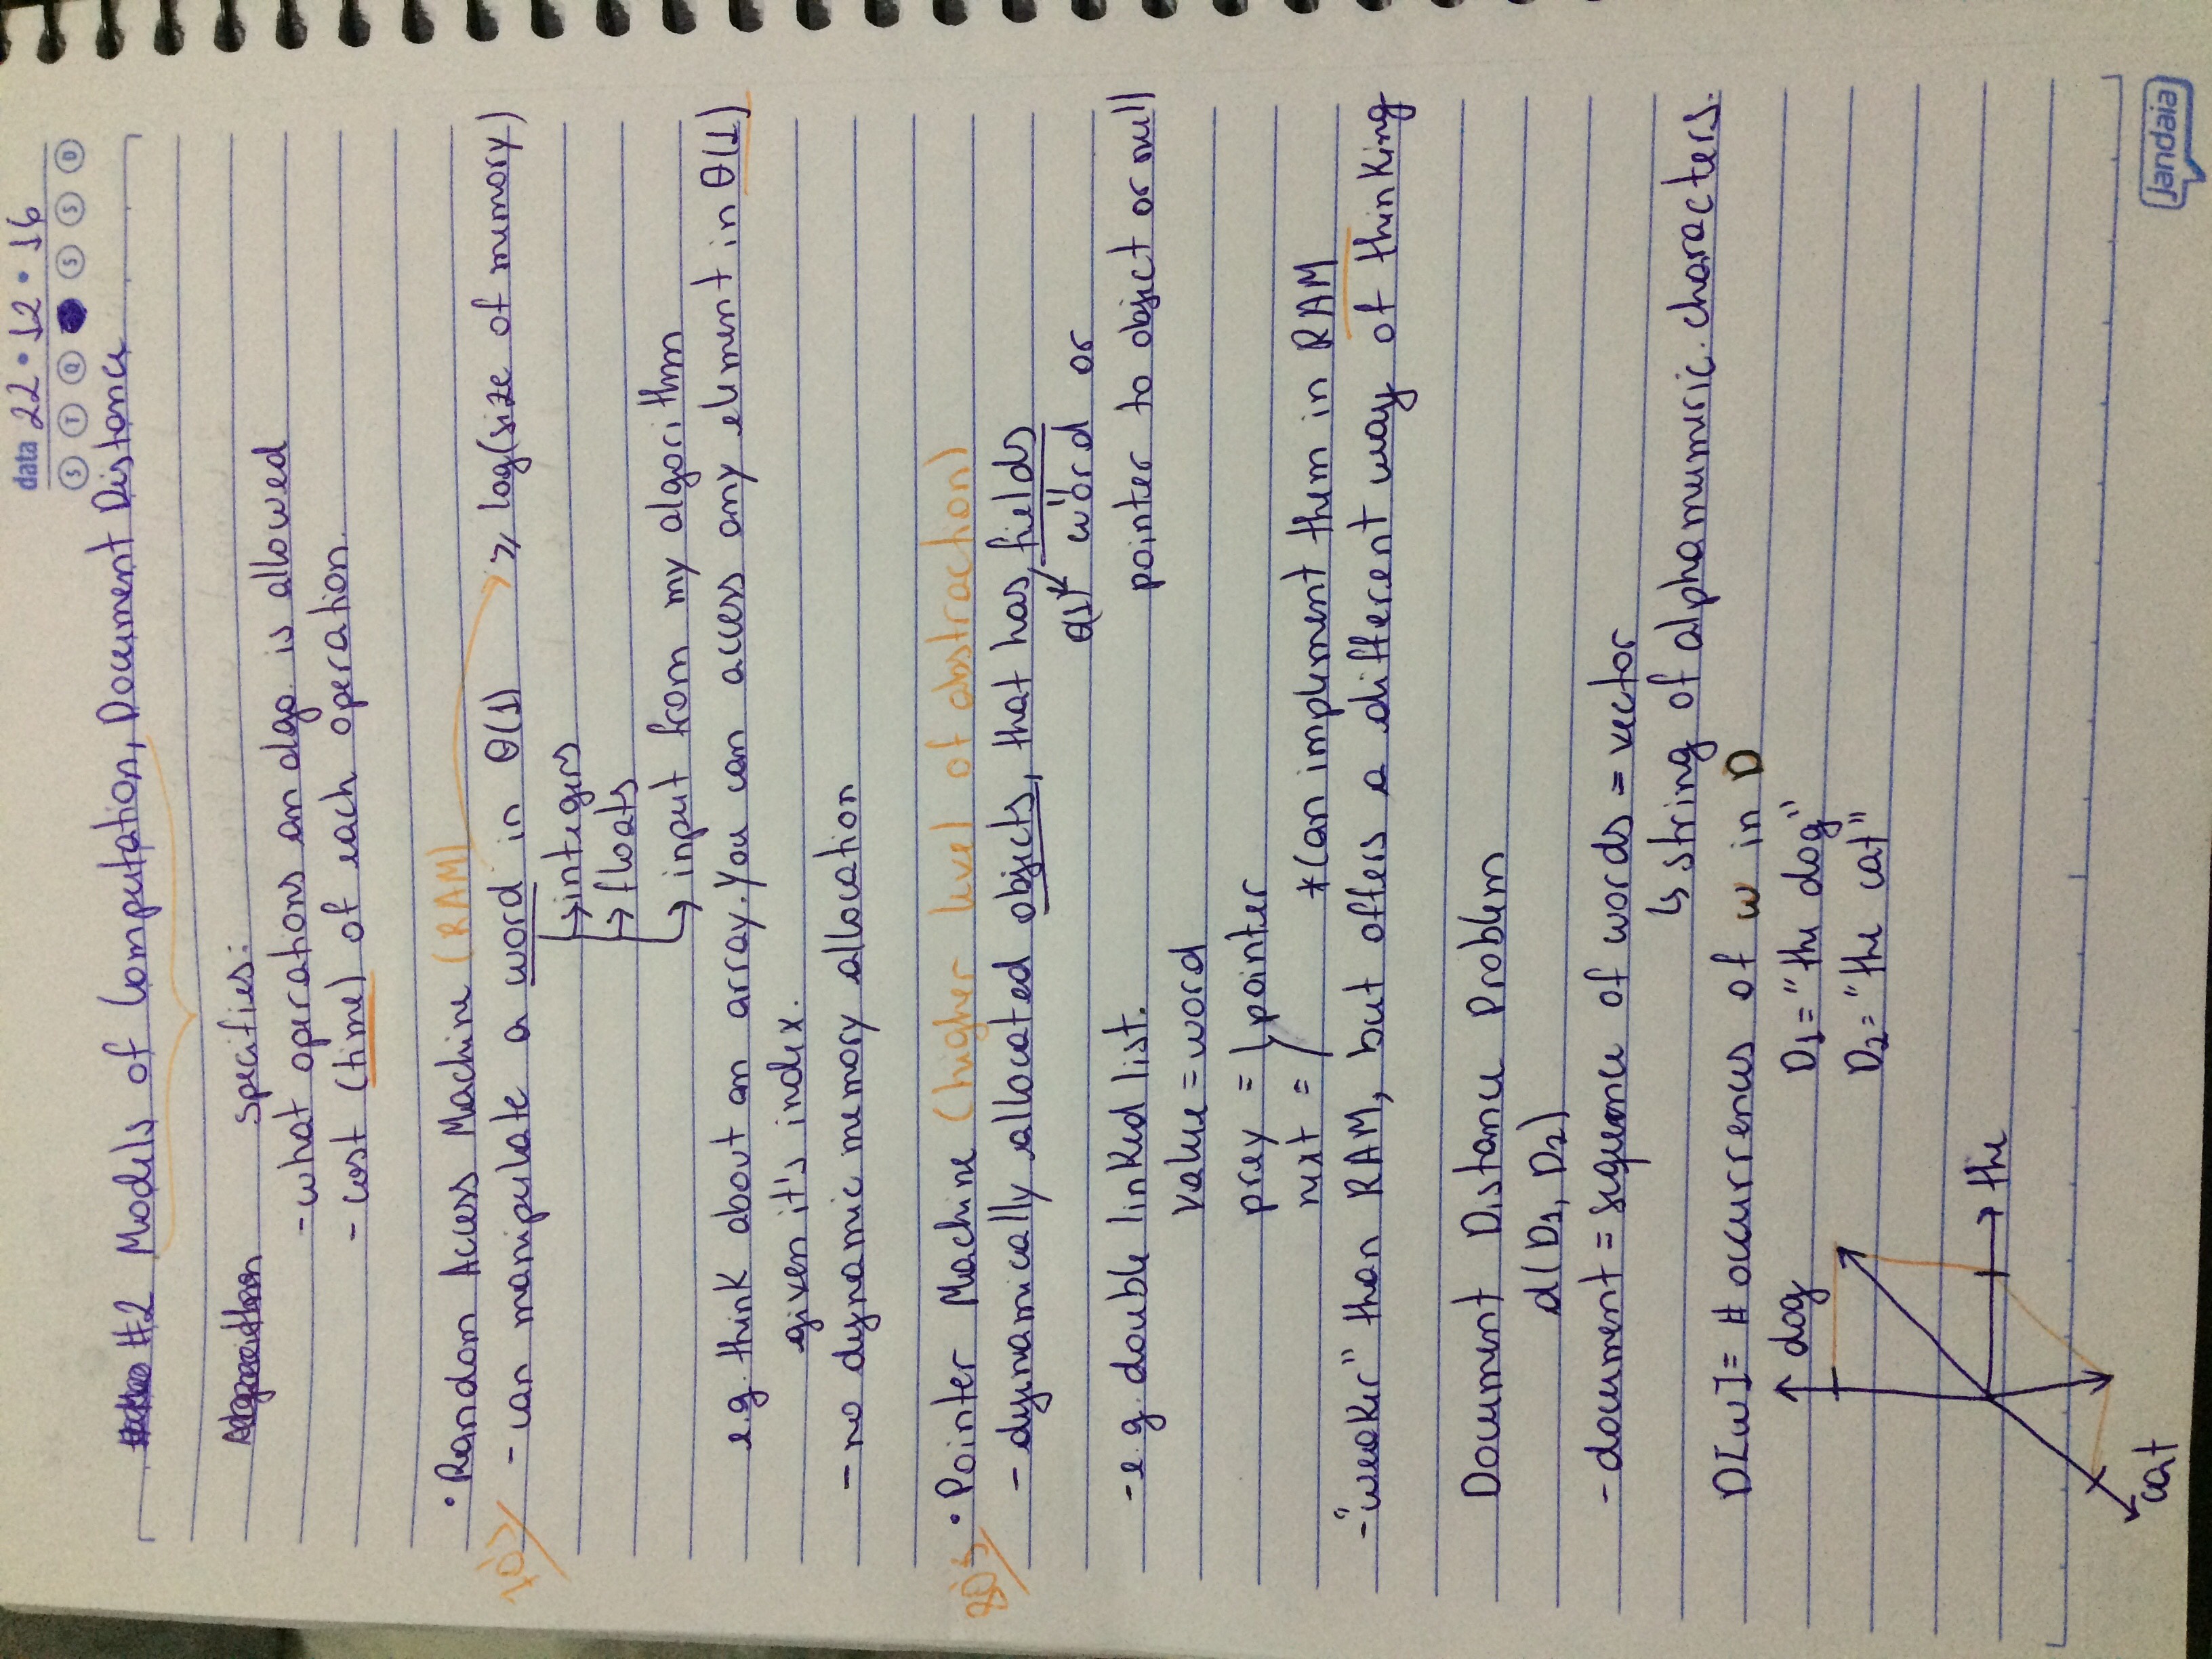 data 22 • 12 • 16
S T Q S S D
#2 Models of Computation, Document Distance
specifies:
- what operations an algo. is allowed
- cost (time) of each operation.
• Random Access Machine (RAM)
70's
- can manipulate a word in θ(1) ⩾ log(size of memory)
↳ integers
↳ floats
↳ input from my algorithm
e.g. think about an array. You can access any element in θ(1)
given it's index.
- no dynamic memory allocation
80's
• Pointer Machine (higher level of abstraction)
- dynamically allocated objects, that has, fields
θ(1) word or
- e.g. double linked list.
pointer to object or null
value = word
prev = pointer
next =
*Can implement them in RAM
- "weaker" than RAM, but offers a different way of thinking
Document Distance Problem
d(D1, D2)
- document = sequence of words = vector
↳ string of alphanumeric characters.
D[w] = # occurrences of w in D
dog
D1 = "the dog"
D2 = "the cat"
the
cat
jandaia